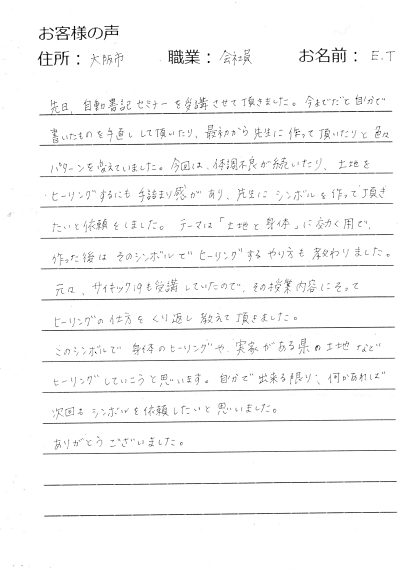 お客様の声
住所： 大阪市 職業： 会社員 お名前： E.T
先日、自動書記セミナーを受講させて頂きました。今までだと自分で
書いたものを手直しして頂いたり、最初から先生に作って頂いたりと色々
パターンを変えていました。今回は、体調不良が続いたり、土地を
ヒーリングするにも手詰まり感があり、先生にシンボルを作って頂き
たいと依頼をしました。テーマは「土地と身体」に効く用で、
作った後はそのシンボルでヒーリングするやり方も教わりました。
元々、サイキック19も受講していたので、その授業内容にそって
ヒーリングの仕方をくり返し教えて頂きました。
このシンボルで身体のヒーリングや、実家がある県の土地など
ヒーリングしていこうと思います。自分で出来る限り、何かあれば
次回もシンボルを依頼したいと思いました。
ありがとうございました。